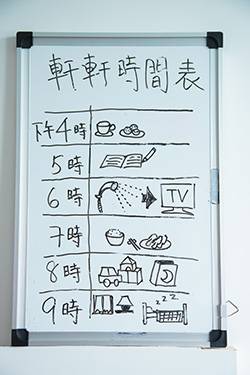 軒軒時間表
下午4時
5時
6時 TV
7時
8時
9時 zzz